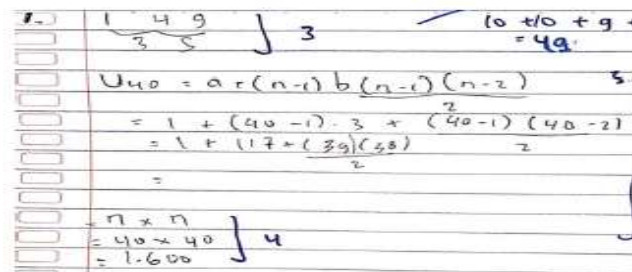 1. 1 4 9
3 5
3
10 +10 + 9
= 49
U40 = a + (n-1) b (n-1) (n-2)
2
= 1 + (40-1) . 3 + (40-1) (40-2)
2
= 1 + 117 + (39)(38)
2
=
= n x n
= 40 x 40
= 1.600
4